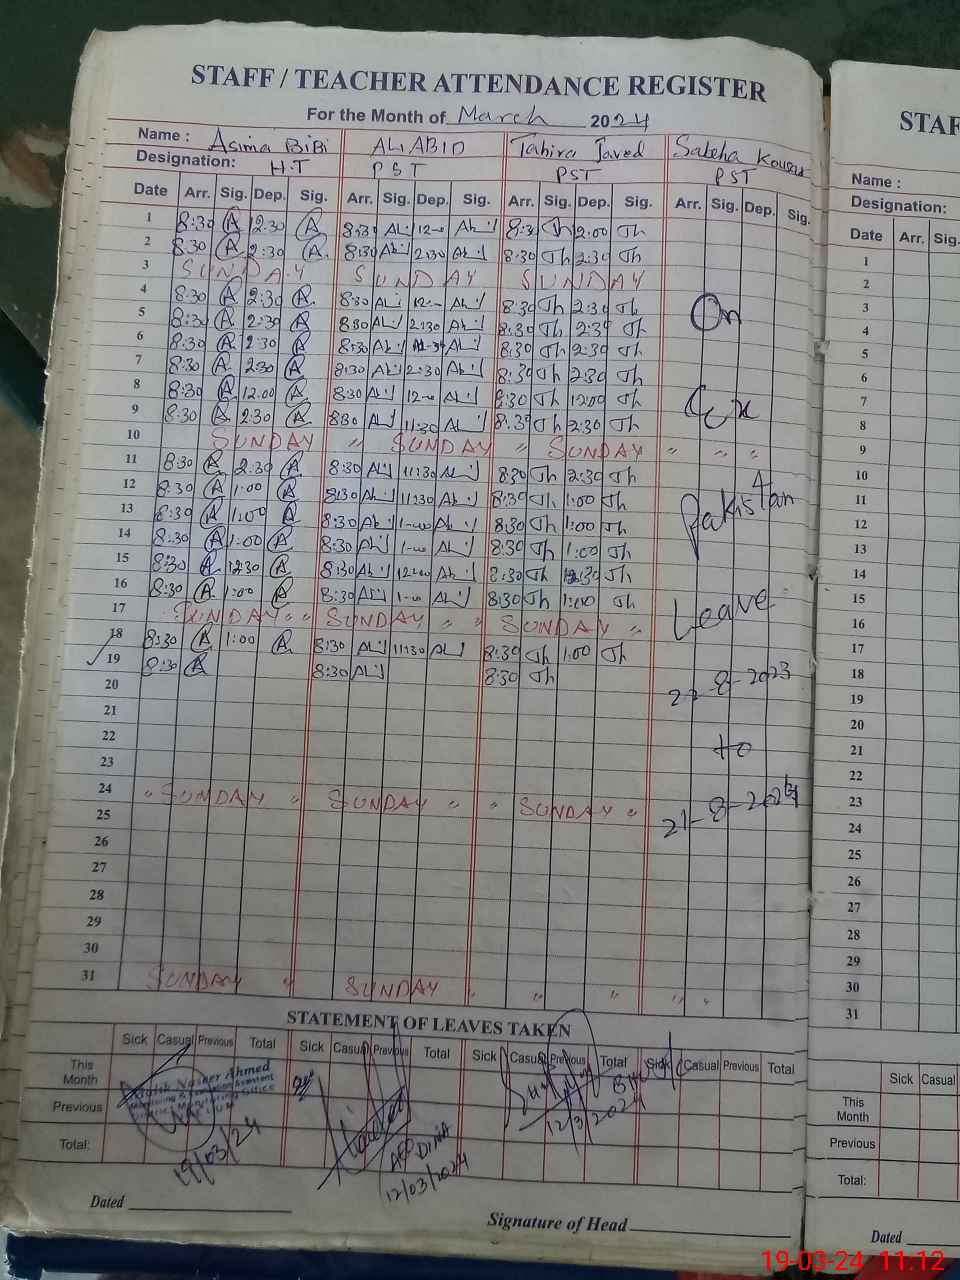 STAFF / TEACHER ATTENDANCE REGISTER
For the Month of March 2024
Name : Asima BiBi ALi ABID Tahira Javed Sabeha Kousar
Designation: H.T PST PST PST
Date Arr. Sig. Dep. Sig. Arr. Sig. Dep. Sig. Arr. Sig. Dep. Sig. Arr. Sig. Dep. Sig.
1 8:30 A 12:30 A 8:30 ALi 12-00 Ali 8:30 Th 12:00 Th
2 8:30 A 2:30 A 8:30 Ali 2:30 Ali 8:30 Th 2:30 Th
3 SUNDAY SUNDAY SUNDAY
4 8:30 A 2:30 A 8:30 ALi 12:00 Ali 8:30 Th 2:30 Th
5 8:30 A 2:30 A 8:30 ALi 2:30 Ali 8:30 Th 2:30 Th
6 8:30 A 2:30 A 8:30 Ali ALi 8:30 Th 2:30 Th
7 8:30 A 2:30 A 8:30 Ali 2:30 Ali 8:30 Th 2:30 Th
8 8:30 A 12:00 A 8:30 ALi 12-00 ALi 8:30 Th 12:00 Th
9 8:30 A 2:30 A 8:30 ALi 11:30 ALi 8:30 Th 2:30 Th
10 SUNDAY " SUNDAY " SUNDAY " " "
11 8:30 A 2:30 A 8:30 ALi 11:30 ALi 8:30 Th 2:30 Th
12 8:30 A 1:00 A 8:30 Ali 11:30 Ali 8:30 Th 1:00 Th
13 8:30 A 1:00 A 8:30 Ali 1-00 Ali 8:30 Th 1:00 Th
14 8:30 A 1:00 A 8:30 ALi 1-00 ALi 8:30 Th 1:00 Th
15 8:30 A 12:30 A 8:30 Ali 12-00 Ali 8:30 Th 12:30 Th
16 8:30 A 1:00 A 8:30 ALi 1-00 ALi 8:30 Th 1:00 Th
17 SUNDAY " " SUNDAY " " SUNDAY "
18 8:30 A 1:00 A 8:30 ALi 11:30 ALi 8:30 Th 1:00 Th
19 8:30 A 8:30 ALi 8:30 Th
20
21
22
23
24 " SUNDAY " SUNDAY " " SUNDAY "
25
26
27
28
29
30
31 SUNDAY " SUNDAY " " " " "
On
Ex
Pakistan
Leave
22-8-2023
to
21-8-2024
STATEMENT OF LEAVES TAKEN
Sick Casual Previous Total Sick Casual Previous Total Sick Casual Previous Total Sick Casual Previous Total
This Month
Previous
Total:
Malik Naseer Ahmed
19/03/24
12/03/2024
12/3/2024
Dated
Signature of Head
STAF
Name :
Designation:
Date Arr. Sig.
1
2
3
4
5
6
7
8
9
10
11
12
13
14
15
16
17
18
19
20
21
22
23
24
25
26
27
28
29
30
31
Sick Casual
This Month
Previous
Total:
Dated
19-03-24 11:12